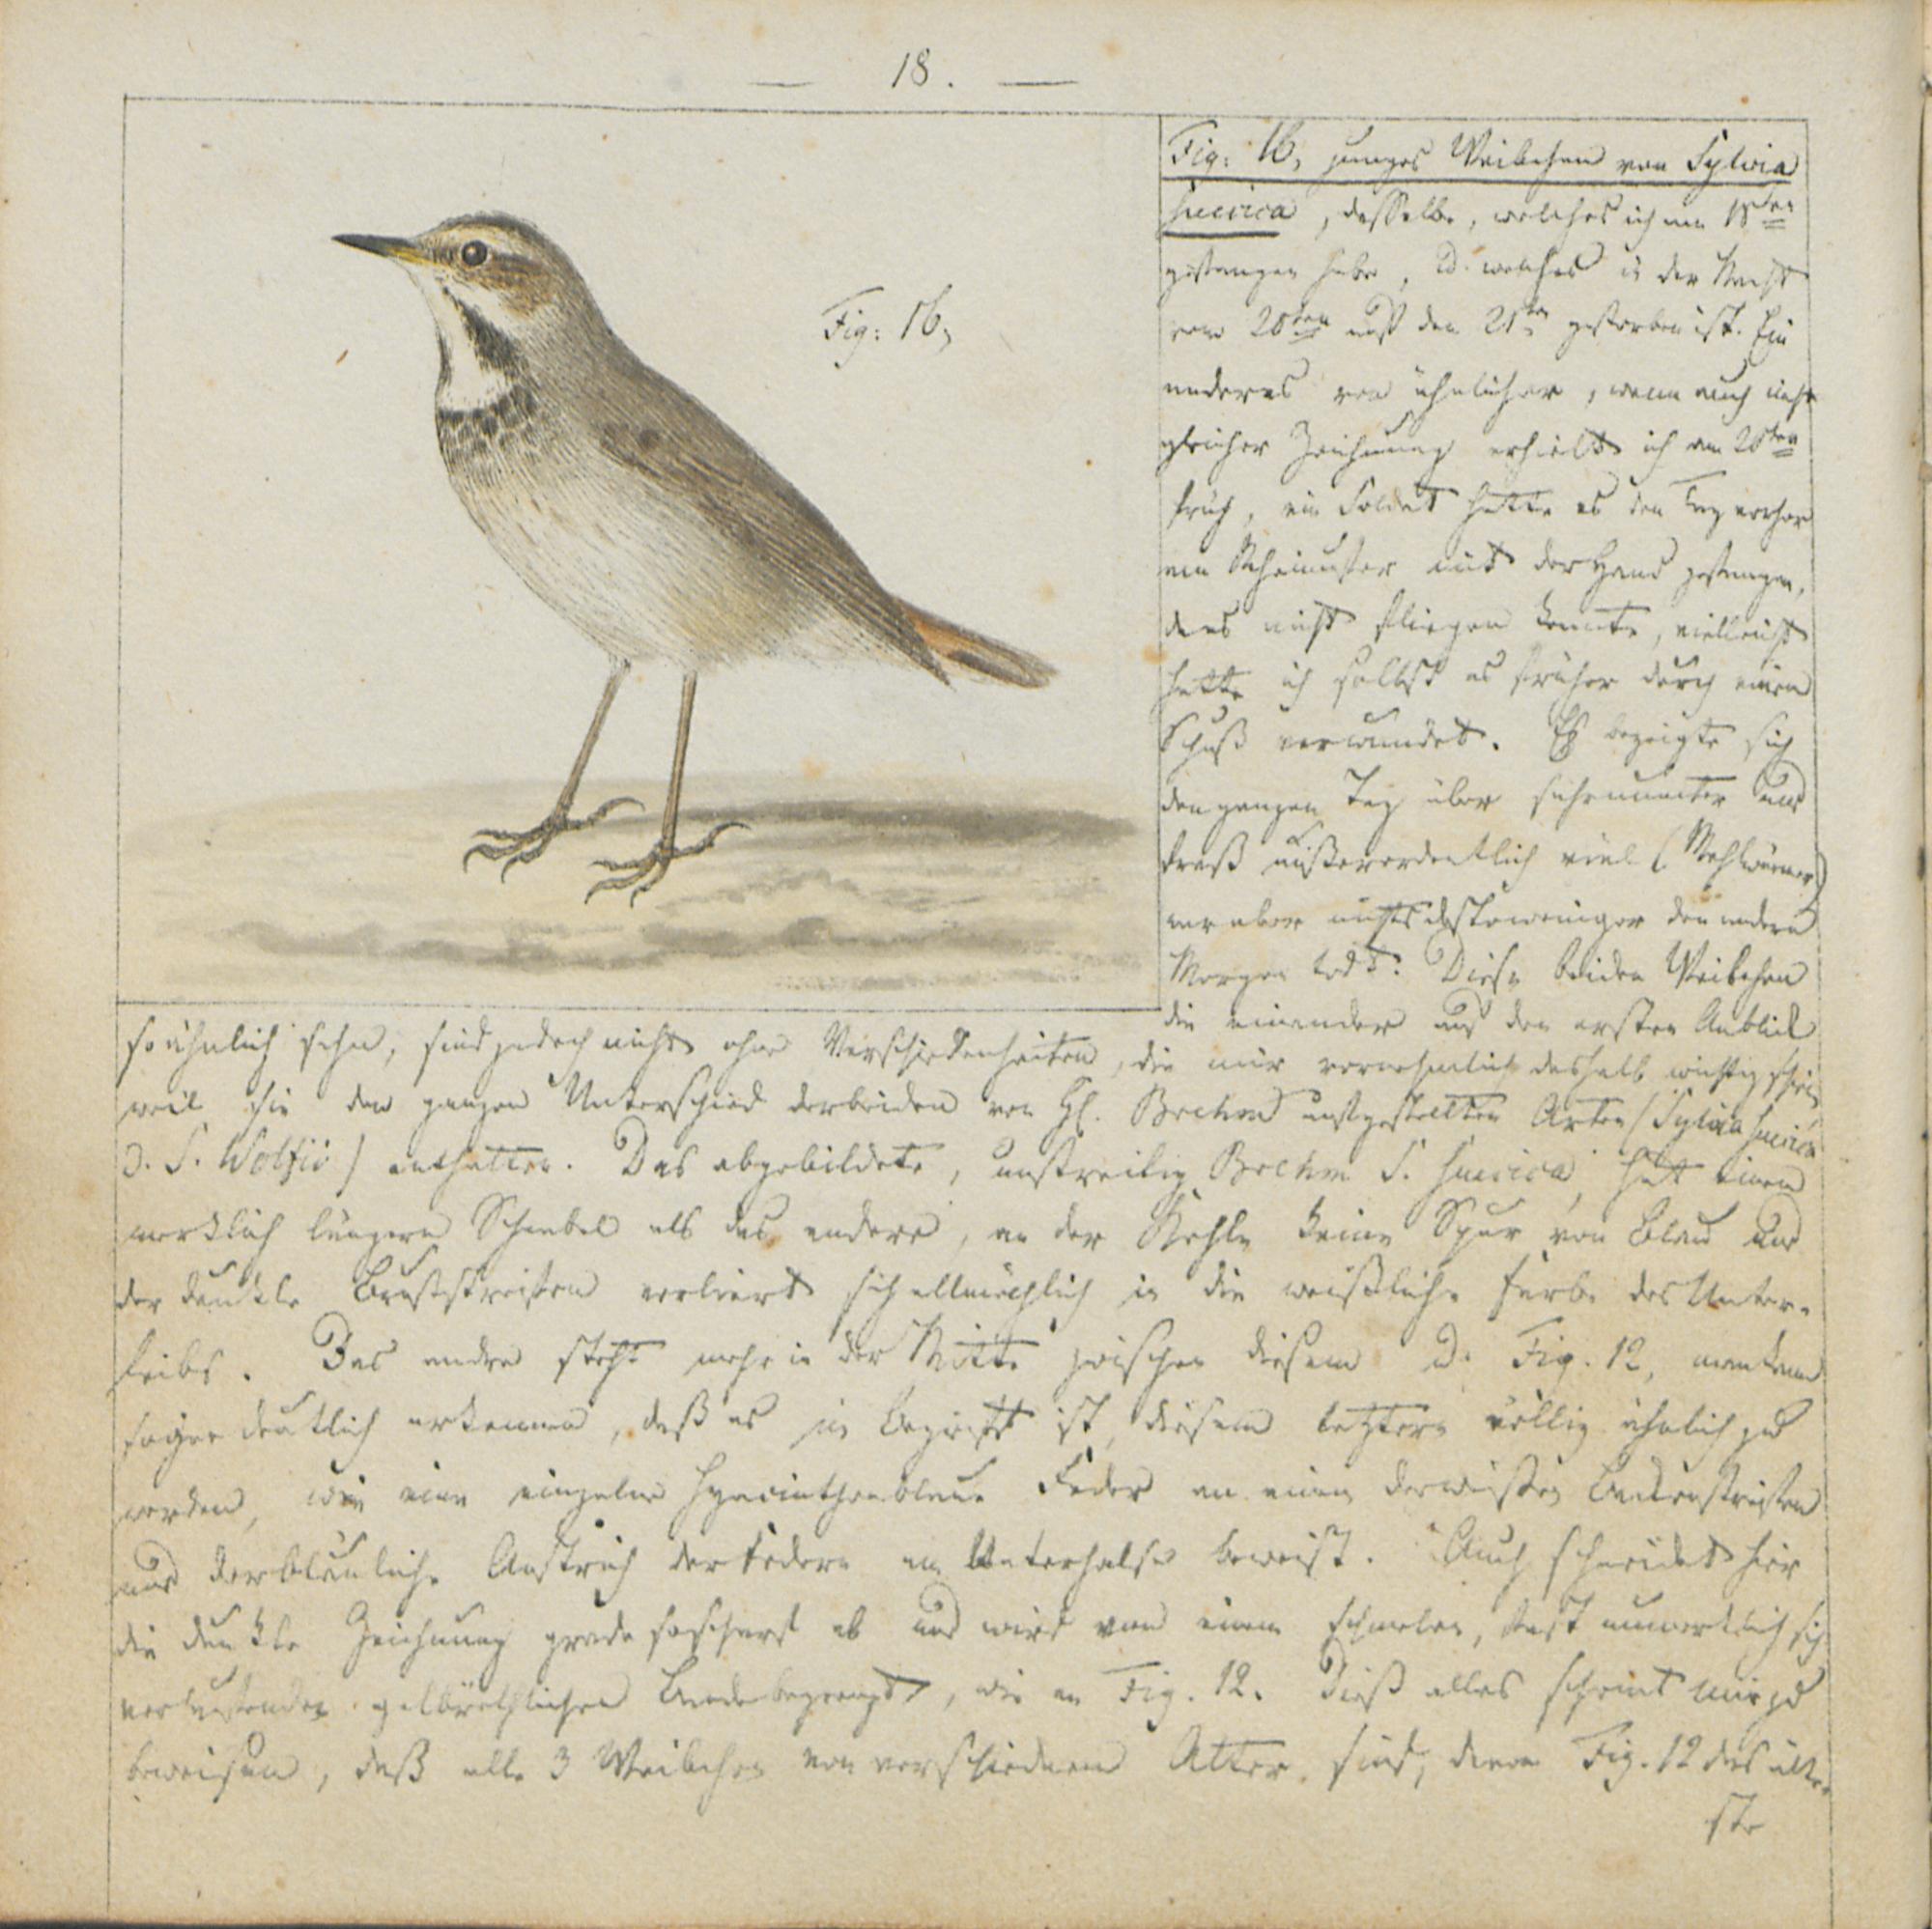 — 18. —
Fig: 16,
Fig: 16, junges Weibchen von Sylvia
suecica, dasselbe, welches ich am 18ten
gefangen habe, u. welches in der Nacht
vom 20ten auf den 21ten gestorben ist. Ein
anderes von ähnlicher, wenn auch nicht
gleicher Zeichnung erhielt ich am 20ten
früh, ein Soldat hatte es den Tag vorher
am Rheinufer mit der Hand gefangen,
da es nicht fliegen konnte, vielleicht
hatte ich selbst es früher durch einen
Schuß verwundet. Es bezeigte sich
den ganzen Tag über sehr munter und
fraß außerordentlich viel (Mehlwürmer)
war aber nichts destoweniger den andern
Morgen todt. Diese beiden Weibchen
die einander auf den ersten Anblick
so ähnlich sehn, sind jedoch nicht ohne Verschiedenheiten, die mir vornehmlich deshalb wichtig
weil sie den ganzen Unterschied der beiden von H. Brehm aufgestellten Arten (Sylvia suecica
u. S. Wolfii) enthalten. Das abgebildete, unstreitig Brehm S. suecica, hat einen
merklich längern Schnabel als das andere, an der Kehle keine Spur von Blau und
der dunkle Bruststreifen verliert sich allmächlich in die weißliche Farbe des Unter-
leibs. Das andre steht mehr in der Mitte zwischen diesem u. Fig. 12, man kann
sogar deutlich erkennen, daß es in Begriff ist, diesem letztern völlig ähnlich zu
werden, wie eine einzelne hyacinthenblaue Feder an einem der weißen Backenstreifen
und der bläuliche Anstrich der Federn am Unterhalse beweist. Auch schneidet hier
die dunkle Zeichnung grade so scharf ab und wird von einem schmalen, fast unmerklich sich
verlaufenden gelbröthlichen Bande begrenzt, wie an Fig. 12. Dieß alles scheint mir zu
beweisen, daß alle 3 Weibchen von verschiednem Alter sind, deren Fig. 12 das älte-
ste